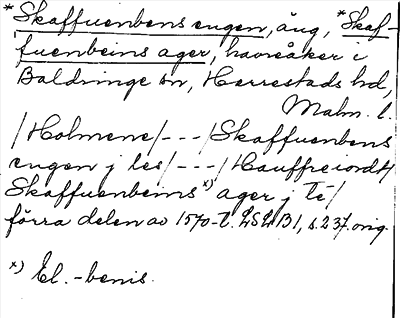 *Skaffuenbens engen, äng, *Skaf-
fuenbeins ager, havreåker i
Baldringe sn, Herrestads hd,
Malm. l.
/Holmene/---/Skaffuenbens
engen j les/---/Hauffreiordt/
Skaffuenbeins x) ager j té/
förra delen av 1570-t. LSLJB1, s. 237. orig.
x) El. -benis.